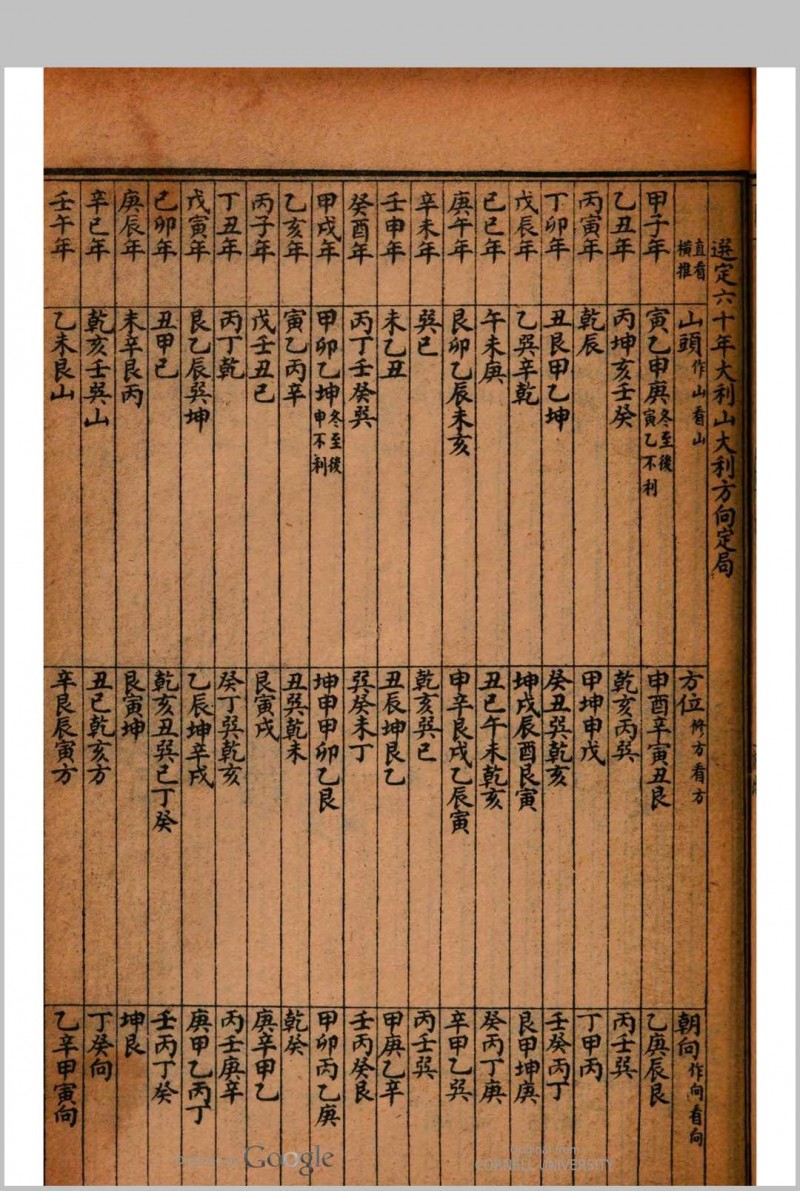 選定六十年大利山大利方向定局
直看橫推 山頭作山看山 方位修方看方 朝向作向看向
甲子年 寅乙甲庚冬至後寅乙不利 申酉辛寅丑艮 乙庚辰艮
乙丑年 丙坤亥壬癸 乾亥丙巽 丙壬巽
丙寅年 乾辰 甲坤申戌 丁甲丙
丁卯年 丑艮甲乙坤 癸丑巽乾亥 壬癸丙丁
戊辰年 乙巽辛乾 坤戌辰酉艮寅 艮甲坤庚
己巳年 午未庚 丑己午未乾亥 癸丙丁庚
庚午年 艮卯乙辰未亥 申辛艮戌乙辰寅 辛甲乙巽
辛未年 巽巳 乾亥巽巳 丙壬巽
壬申年 未乙丑 丑辰坤艮乙 甲庚乙辛
癸酉年 丙丁壬癸巽 巽癸未丁 壬丙癸艮
甲戌年 甲卯乙坤冬至後申不利 坤申甲卯乙艮 甲卯丙乙庚
乙亥年 寅乙丙辛 丑巽乾未 乾癸
丙子年 戊壬丑巳 艮寅戌 庚辛甲乙
丁丑年 丙丁乾 癸丁巽乾亥 丙壬庚辛
戊寅年 艮乙辰巽坤 乙辰坤辛戌 庚甲乙丙丁
己卯年 丑甲巳 乾亥丑巽巳丁癸 壬丙丁癸
庚辰年 未辛艮丙 艮寅坤 坤艮
辛巳年 乾亥壬巽山 丑巳乾亥方 丁癸向
壬午年 乙未艮山 辛艮辰寅方 乙辛甲寅向
Google
CORNELL UNIVERSITY